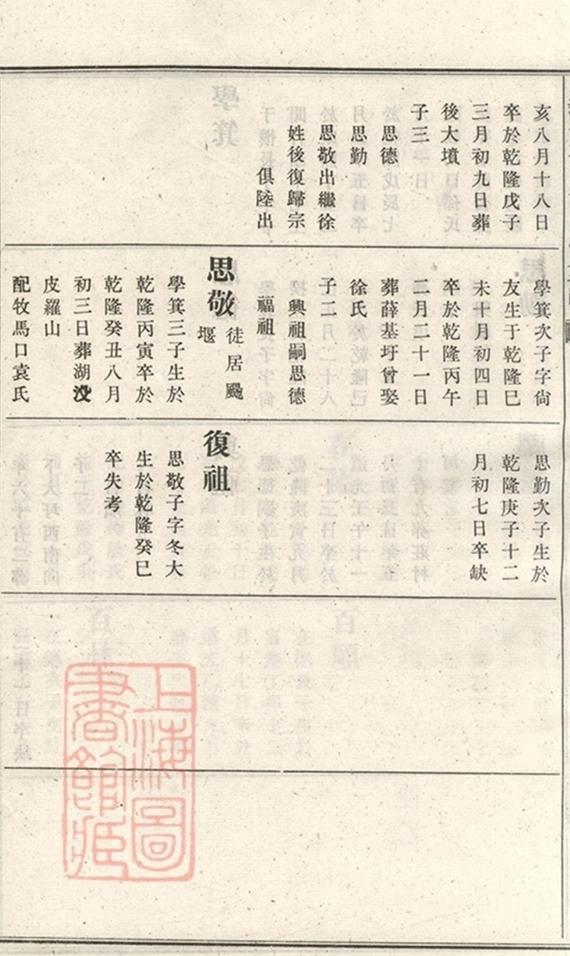 亥八月十八日
卒於乾隆戊子
三月初九日葬
後大墳
子三
思德
思勤
思敬出繼徐
姓後復歸宗
俱陸出
學箕次子字尙
友生于乾隆巳
未十月初四日
卒於乾隆丙午
二月二十一日
葬薛基圩曾娶
徐氏
子二
興祖嗣思德
福祖
思敬
徒居颺
堰
學箕三子生於
乾隆丙寅卒於
乾隆癸丑八月
初三日葬湖㳇
皮羅山
配牧馬口袁氏
思勤次子生於
乾隆庚子十二
月初七日卒缺
復祖
思敬子字冬大
生於乾隆癸巳
卒失考
上海圖
書館藏